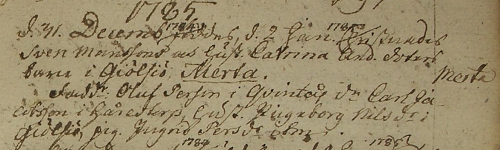 1785
d. 31. Decemb: 1784 föddes, d. 2 Jan. 1785 Christnades
Sven Månssons och hust. Catrina And. doters
barn i Giölsiö, Merta. Merta
Fadd. Oluf Persson i Qvinteis, Dr. Carl Ja-
cobsson i Hust. Ingeborg Nils dr. i
Giölsiö, pig. Ingrid Pers dr.
1784 1785